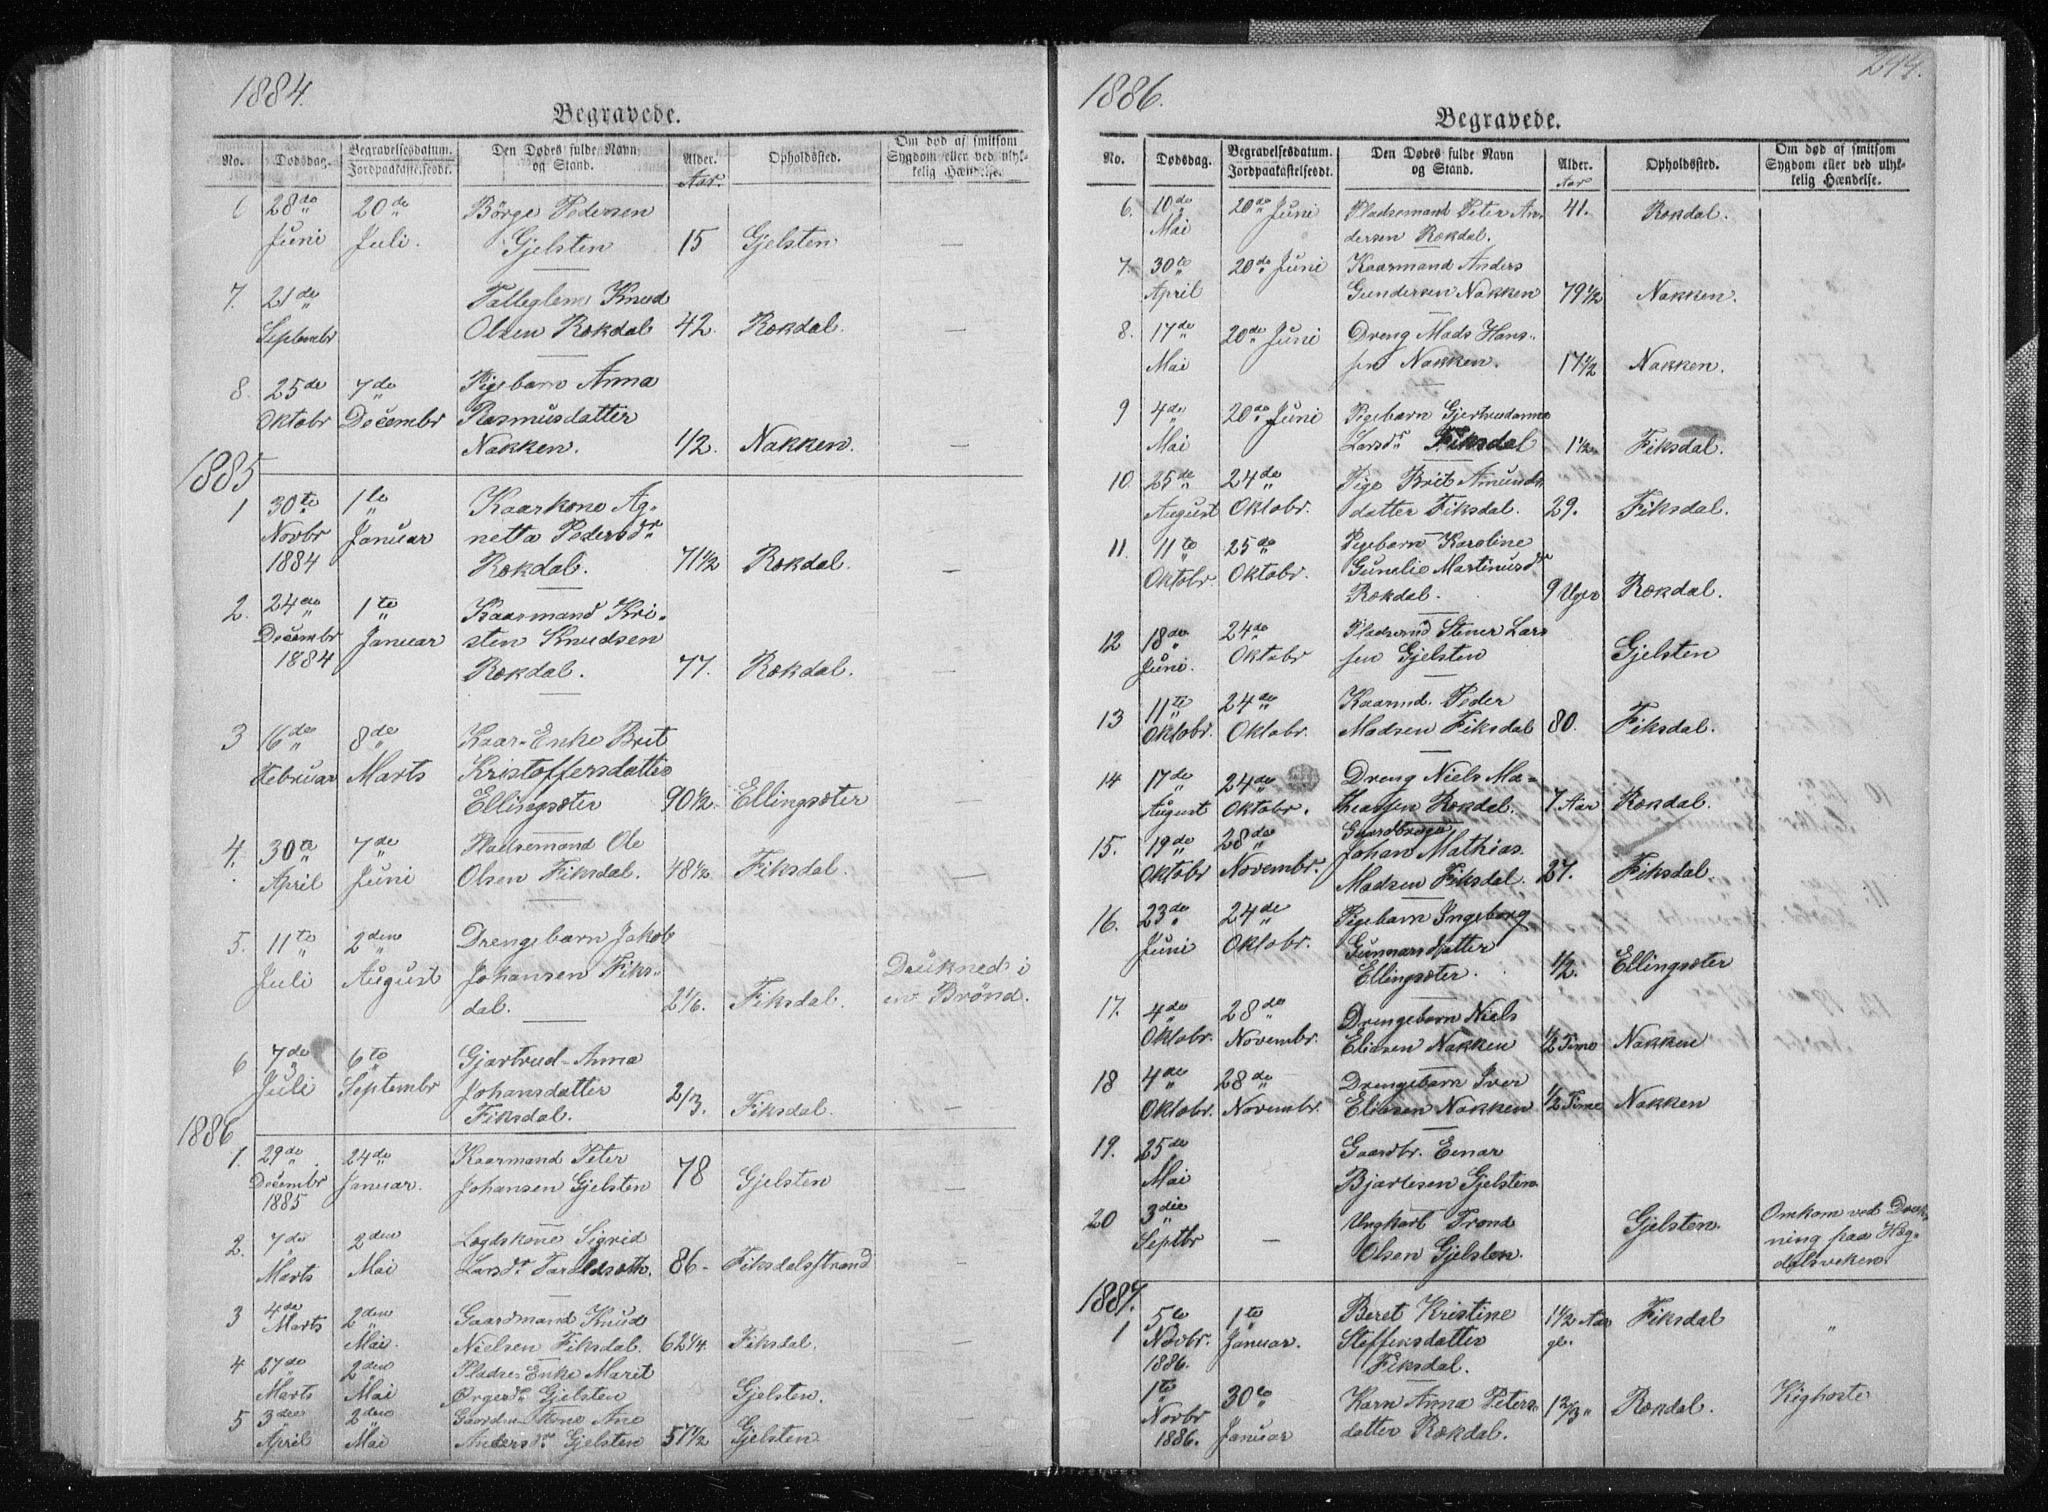 1884.
Begravede.
No. Dødsdag. Begravelsesdatum. Jordpaakastelsesdt. Den Dødes fulde Navn og Stand. Alder. Aar. Opholdssted. Om død af smitsom Sygdom eller ved ulykkelig Hændelse.
6 28de 20de Börge Pedersen
Juni Juli. Gjelsten 15 Gjelsten —
7. 21de Knud
Septembr Olsen Rekdal 42. Rekdal. —
8. 25de 7de Pigebarn Anna
Oktobr Decembr Rasmusdatter
Nakken. 1/2. Nakken. —
1885
1 30te 1te Kaarkone Ag-
Novbr Januar netta Pedersdr
1884 Rekdal. 71 1/2 Rekdal. —
2. 24de 1te Kaarmand Kri-
Decembr Januar sten Knudsen
1884 Rekdal. 77. Rekdal. —
3 16de 8de Kaar-Enke Brit
Februar Marts Kristoffersdatter
Ellingsæter 90 1/2. Ellingsæter —
4. 30te 7de Pladsemand Ole
April Juni Olsen Fiksdal. 48 1/2. Fiksdal. —
5. 11te 2den Drengebarn Jakob
Juli August Johansen Fiks-
dal. 2 1/6. Fiksdal. Druknede i en Brönd.
6 7de 6te Gjartrud-Anna
Juli Septembr Johansdatter
Fiksdal. 2/3. Fiksdal. —
1886
1. 29de 24de Kaarmand Peter
Decembr Januar. Johansen Gjelsten 78 Gjelsten —
1885
2. 7de 2den Lægdskone Sigrid
Marts Mai Larsdr 86- Fiksdalsstrand —
3 4de 2den Gaardmand Knud
Marts Mai. Nielsen Fiksdal. 62 1/4. Fiksdal. —
4 27de 2den Pladse-Enke Marit
Marts Mai Gjelsten Gjelsten.
5 3die 2den Kone Ane
April Mai Andersdr Gjelsten 57 1/2 Gjelsten.
1886.
244.
Begravede.
No. Dødsdag. Begravelsesdatum. Jordpaakastelsesdt. Den Dødes fulde Navn og Stand. Alder. Aar Opholdssted. Om død af smitsom Sygdom eller ved ulykkelig Hændelse.
6. 10de 20de Juni Pladsemand Peter An- 41. Rekdal.
Mai dersen Rekdal.
7. 30te 20de Juni Kaarmand Anders
April Gundersen Nakken 79 1/2 Nakken.
8. 17de 20de Juni Dreng Mads Hans-
Mai sen Nakken. 17 1/2 Nakken.
9 4de 20de Juni Pigebarn Gjertrudanna
Mai Larsdr Fiksdal 1 1/2 Fiksdal.
10. 25de 24de Pige Brit Amunds-
August Oktobr. datter Fiksdal. 29. Fiksdal.
11. 11te 25de Pigebarn Karoline
Oktobr. Oktobr. Gunelie Martinusdr
Rekdal. 9 Uger Rekdal.
12 18de 24de Pladsemd Stener Lars-
Juni. Oktobr sen Gjelsten Gjelsten
13 11te 24de Kaarmd. Peder
Oktobr. Oktobr. Madsen Fiksdal 80. Fiksdal.
14 17de 24de Dreng Niels Ma-
August Oktobr. theasen Rekdal. 7 Aar Rekdal.
15. 19de 28de Gaardbruger
Johan Mathias
Oktobr Novembr. Madsen Fiksdal. 27. Fiksdal.
16. 23de 24de Pigebarn Ingeborg
Juni Oktobr. Gunnarsdatter
Ellingsæter. 1/2. Ellingsæter
17. 4de 28de Drengebarn Niels
Oktobr. Novembr. Eliasen Nakken 1/2 Time Nakken
18 4de 28de Drengebarn Iver
Oktobr. Novembr. Eliasen Nakken 1/2 Time Nakken
19. 25de Gaardbr. Einar
Mai Bjartesen Gjelsten
20 3die Ungkarl Trond Gjelsten. Omkom ved Druk-
Septbr — Olsen Gjelsten. ning paa Hæg-
dalsveken.
1887.
1 5te 1te Beret Kristine 1 1/2 Aar Fiksdal "
Novbr. Januar. Steffensdatter gl.
1886. Fiksdal.
1te 30te Karn Anna Peters- 1 2/3 " Rekdal. Kighoste
Novbr Januar datter Rekdal.
1886.